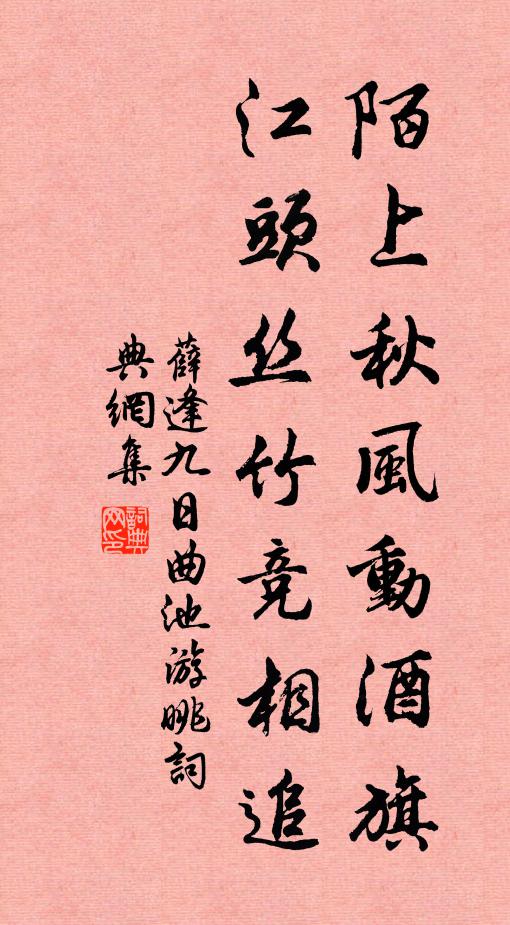 陌上秋風動酒旗
江頭丝竹竞相追
薛逢九日曲池游眺詞
典網集
詞典网印